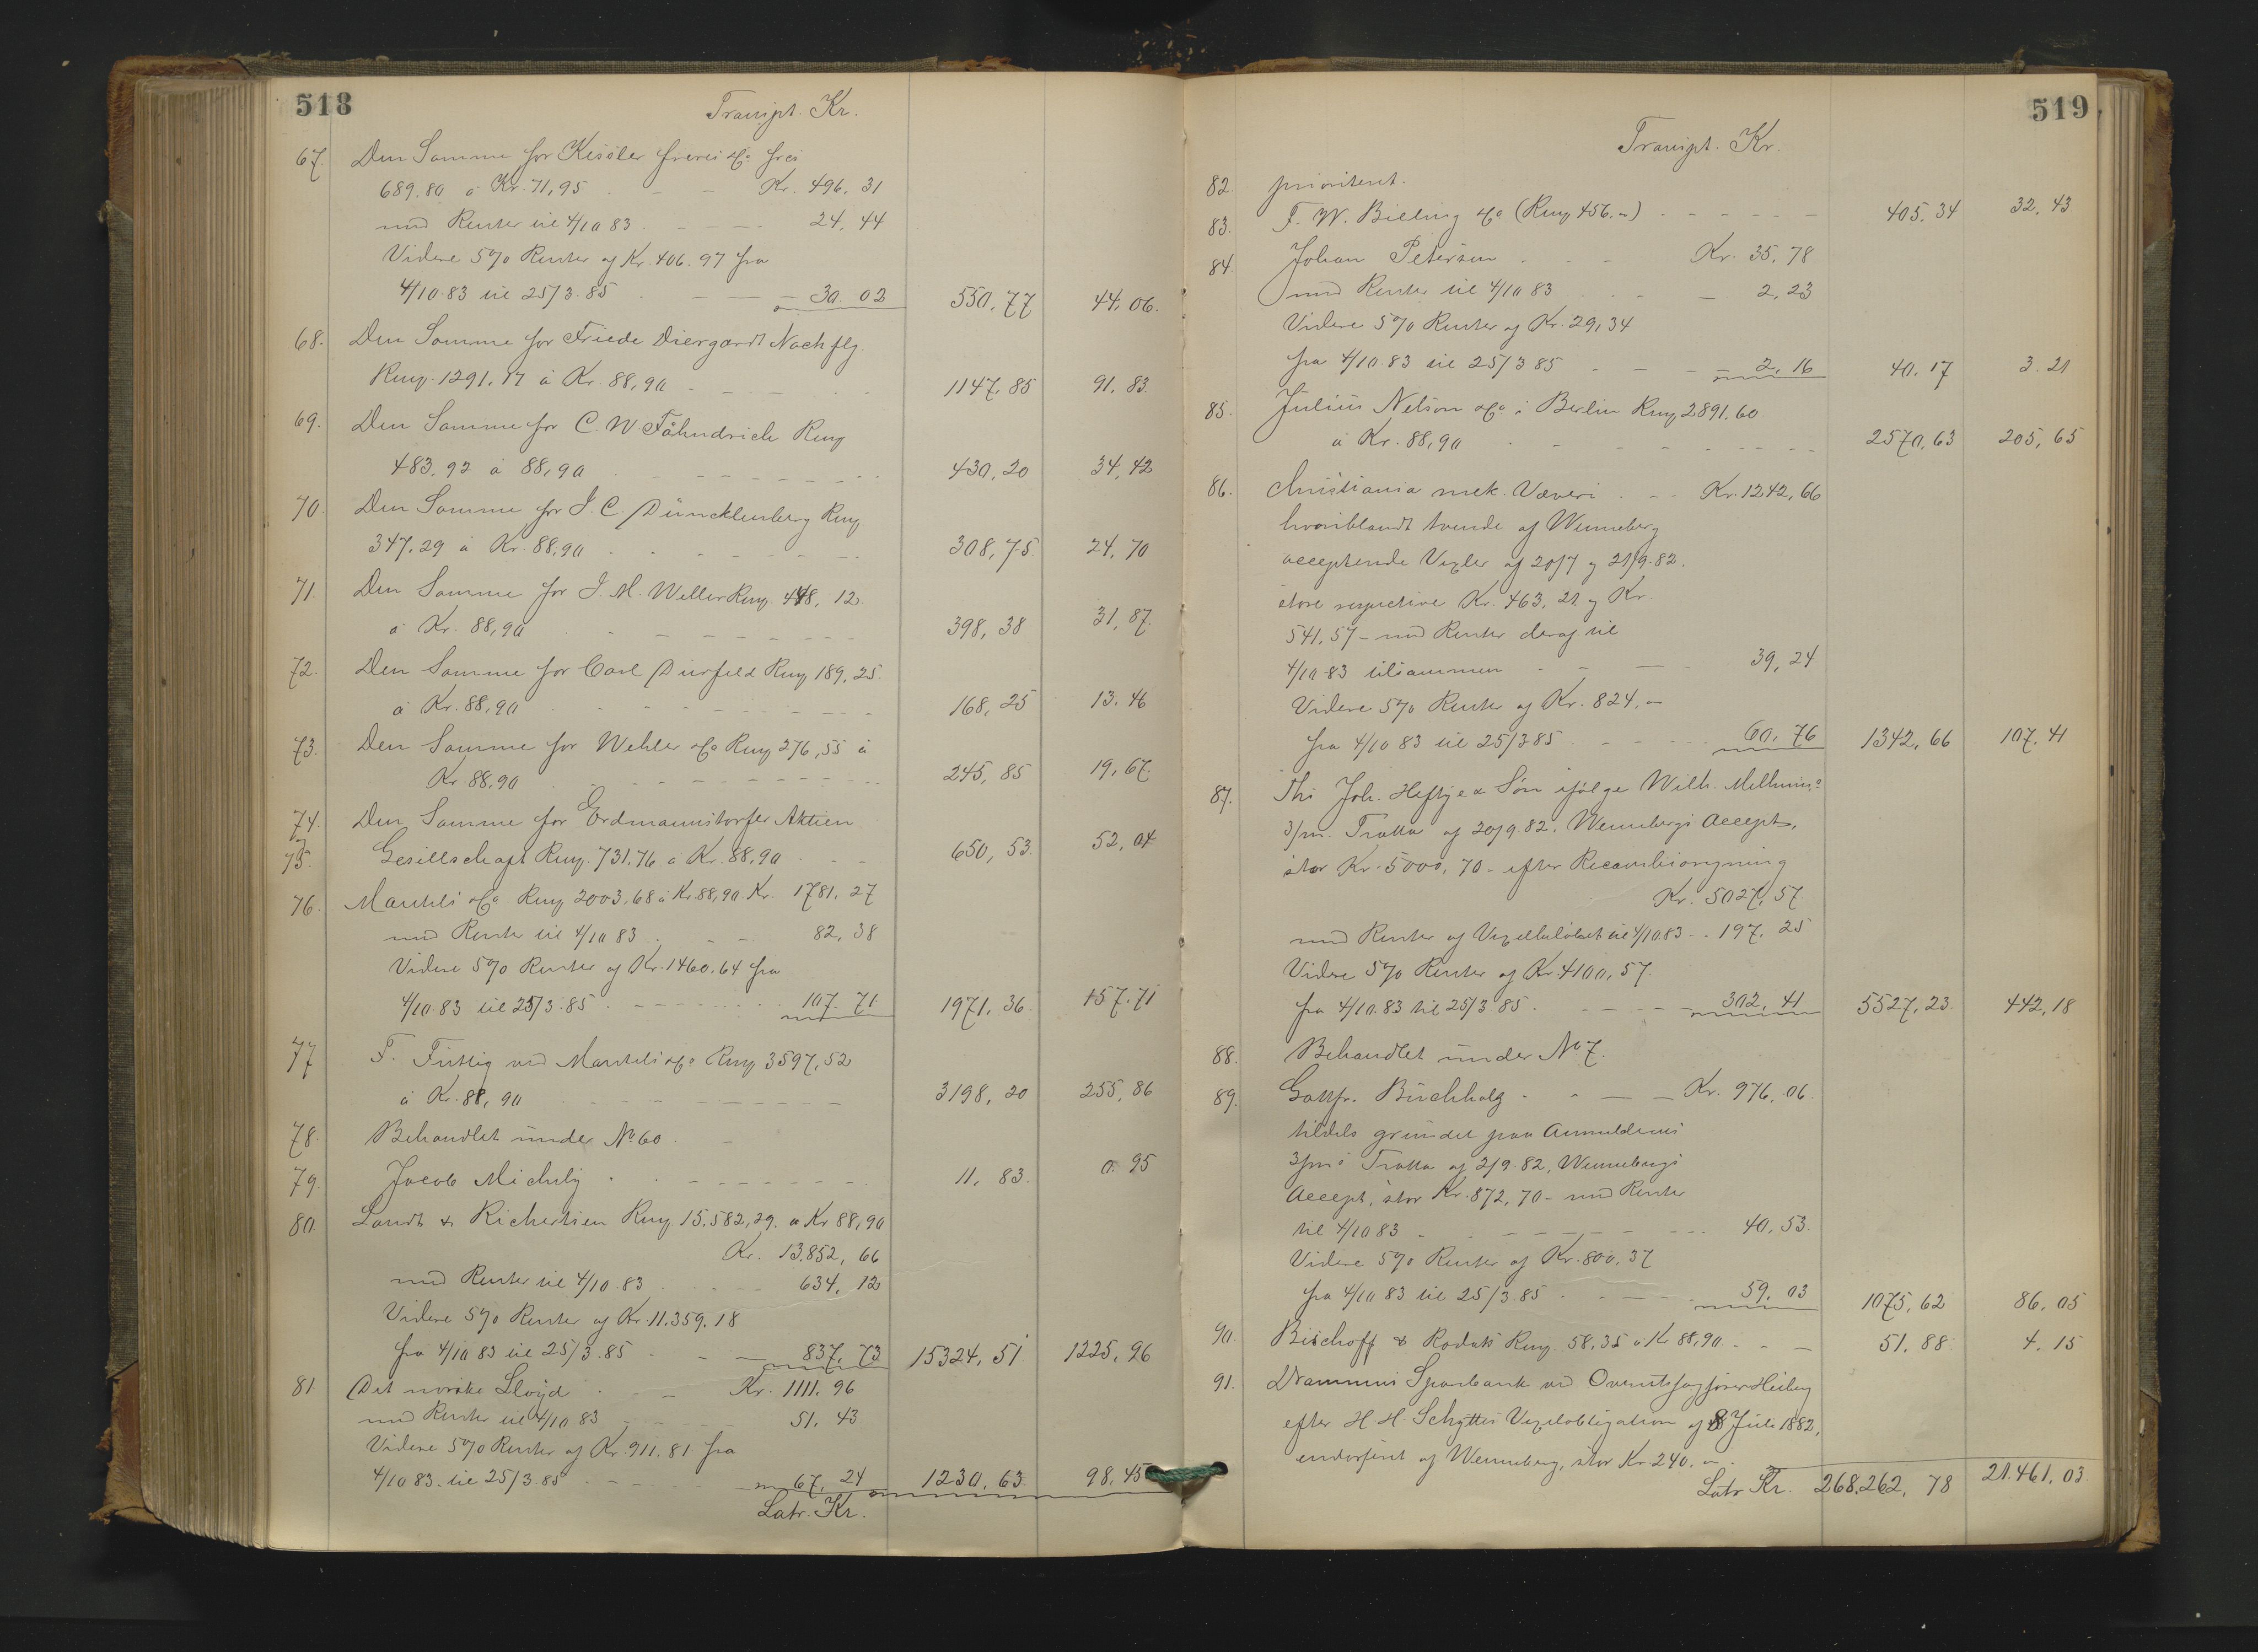 518
Transpt. Kr.
67. Den Samme for Kessler freres & Co frcs
689.80 à Kr. 71,95 - - Kr. 496.31
med Renter til 4/10 83 - - - - 24,44
Videre 5% Renter af Kr. 406.97 fra
4/10.83 til 25/3.85 - - - 30.02 550,77 44,06.
68. Den Samme for Friede Diergardt Nachflg.
Rmg. 1291.17 à Kr. 88,90 - - - - 1147,85 91.83.
69. Den Samme for C. W. Fähndrich Rmg
483.92 à 88,90 - - - - - - - - 430,20 34,42
70. Den Samme for J. C. Düncklenberg Rmg.
347.29 à Kr. 88,90 - - - - - - - 308,75. 24,70
71. Den Samme for J. M. Weller Rmg. 448,12.
à Kr. 88,90 - - - - - - - - 398,38 31,87.
72. Den Samme for Carl Dürfeld Rmg 189,25.
à Kr. 88,90 - - - - - - - - 168,25 13.46
73. Den Samme for Wehler & Co Rmg 276,55 à
Kr. 88,90 - - - - - - - - - 245,85 19,67.
74. Den Samme for Erdmannsdorfer Aktien
og
75. Gesellschaft Rmg. 731.76 à Kr. 88,90 - - - 650,53. 52,04
76. Mantels & Co. Rmg 2003,68 à Kr 88,90. Kr. 1781,27
med Renter til 4/10 83 - - - 82,38
Videre 5% Renter af Kr. 1460.64 fra
4/10 83 til 25/3.85 - - - - - - 107.71 1971,36 157.71
77 F. Fittig ved Mantels & Co Rmg 3597,52
à Kr. 88,90 - - - - - - - - 3198,20 255,86
78. Behandlet under No 60. -
79. Jacob Michely - - - - - - - 11,83. 0.95
80. Landt & Richertsen Rmg. 15.582,29. à Kr 88,90
Kr. 13.852,66
med Renter til 4/10 83 - - - - 634,12
Videre 5% Renter af Kr. 11.359.18
fra 4/10 83 til 25/3.85 - - - 837,73 15324,51 1225,96
81 Det norske Lloyd - - - Kr. 1111.96
med Renter til 4/10 83 - - - - 51,43.
Videre 5% Renter af Kr. 911.81 fra
4/10 83. til 25/3.85 - - - - - 67,24 1230,63. 98,45
Latr. Kr.
519
Transpt. Kr.
82. prioritert.
83. F. W. Bieling & Co (Rmg 456.-) - - - - - - 405,34 32,43
84. Johan Petersen - - - Kr. 35,78
med Renter til 4/10 83 - - - - 2,23
Videre 5% Renter af Kr. 29,34
fra 4/10.83 til 25/3 85 - - - 2,16 40,17 3.21
85. Julius Nelson & Co i Berlin Rmg 2891.60
à Kr. 88,90 - - - - - - - 2570,63 205,65
86. Christiania mek. Væveri - - - Kr. 1242,66
hvoriblandt tvende af Wenneberg
accepterede Vexler af 20/7 og 21/9.82.
store respective Kr. 463,21 og Kr.
541,57 - med Renter deraf til
4/10 83 tilsammen - - - - 39,24
Videre 5% Renter af Kr. 824,-
fra 4/10 83 til 25/3 85 - - - - - 60,76 1342,66 107,41
87. Ths Joh. Heftye & Søn ifølge Wilh. Mellums
3/m. Tratta af 20/9.82, Wennebergs Accept,
stor Kr. 5000,70 - efter Recambioregning
Kr. 5027,57
med Renter af Vexelbeløbet til 4/10.83 - - 197,25
Videre 5% Renter af Kr. 4100,57
fra 4/10.83 til 25/3.85 - - - - 302,41 5527,23. 442,18
88. Behandlet under No 7.
89. Gottfr. Büchholz - - - Kr. 976.06.
tildels grundet paa Anmelderens
3/ms Tratta af 2/9.82, Wennebergs
Accept, stor Kr. 872,70 - med Renter
til 4/10 83 - - - - - - - - 40,53.
Videre 5% Renter af Kr. 800,37
fra 4/10 83 til 25/3.85 - - - - 59,03 1075,62 86,05
90. Bischoff & Rodatz Rmg. 58,35 à Kr 88,90 - - - 51,88 4,15
91. Drammens Sparebank ved Overretssagfører Heiberg
efter H. H. Schyttes Vexelobligation af 8 Juli 1882,
endorsert af Wenneberg, stor Kr. 240.-
Latr Kr. 268.262,78 21.461,03.